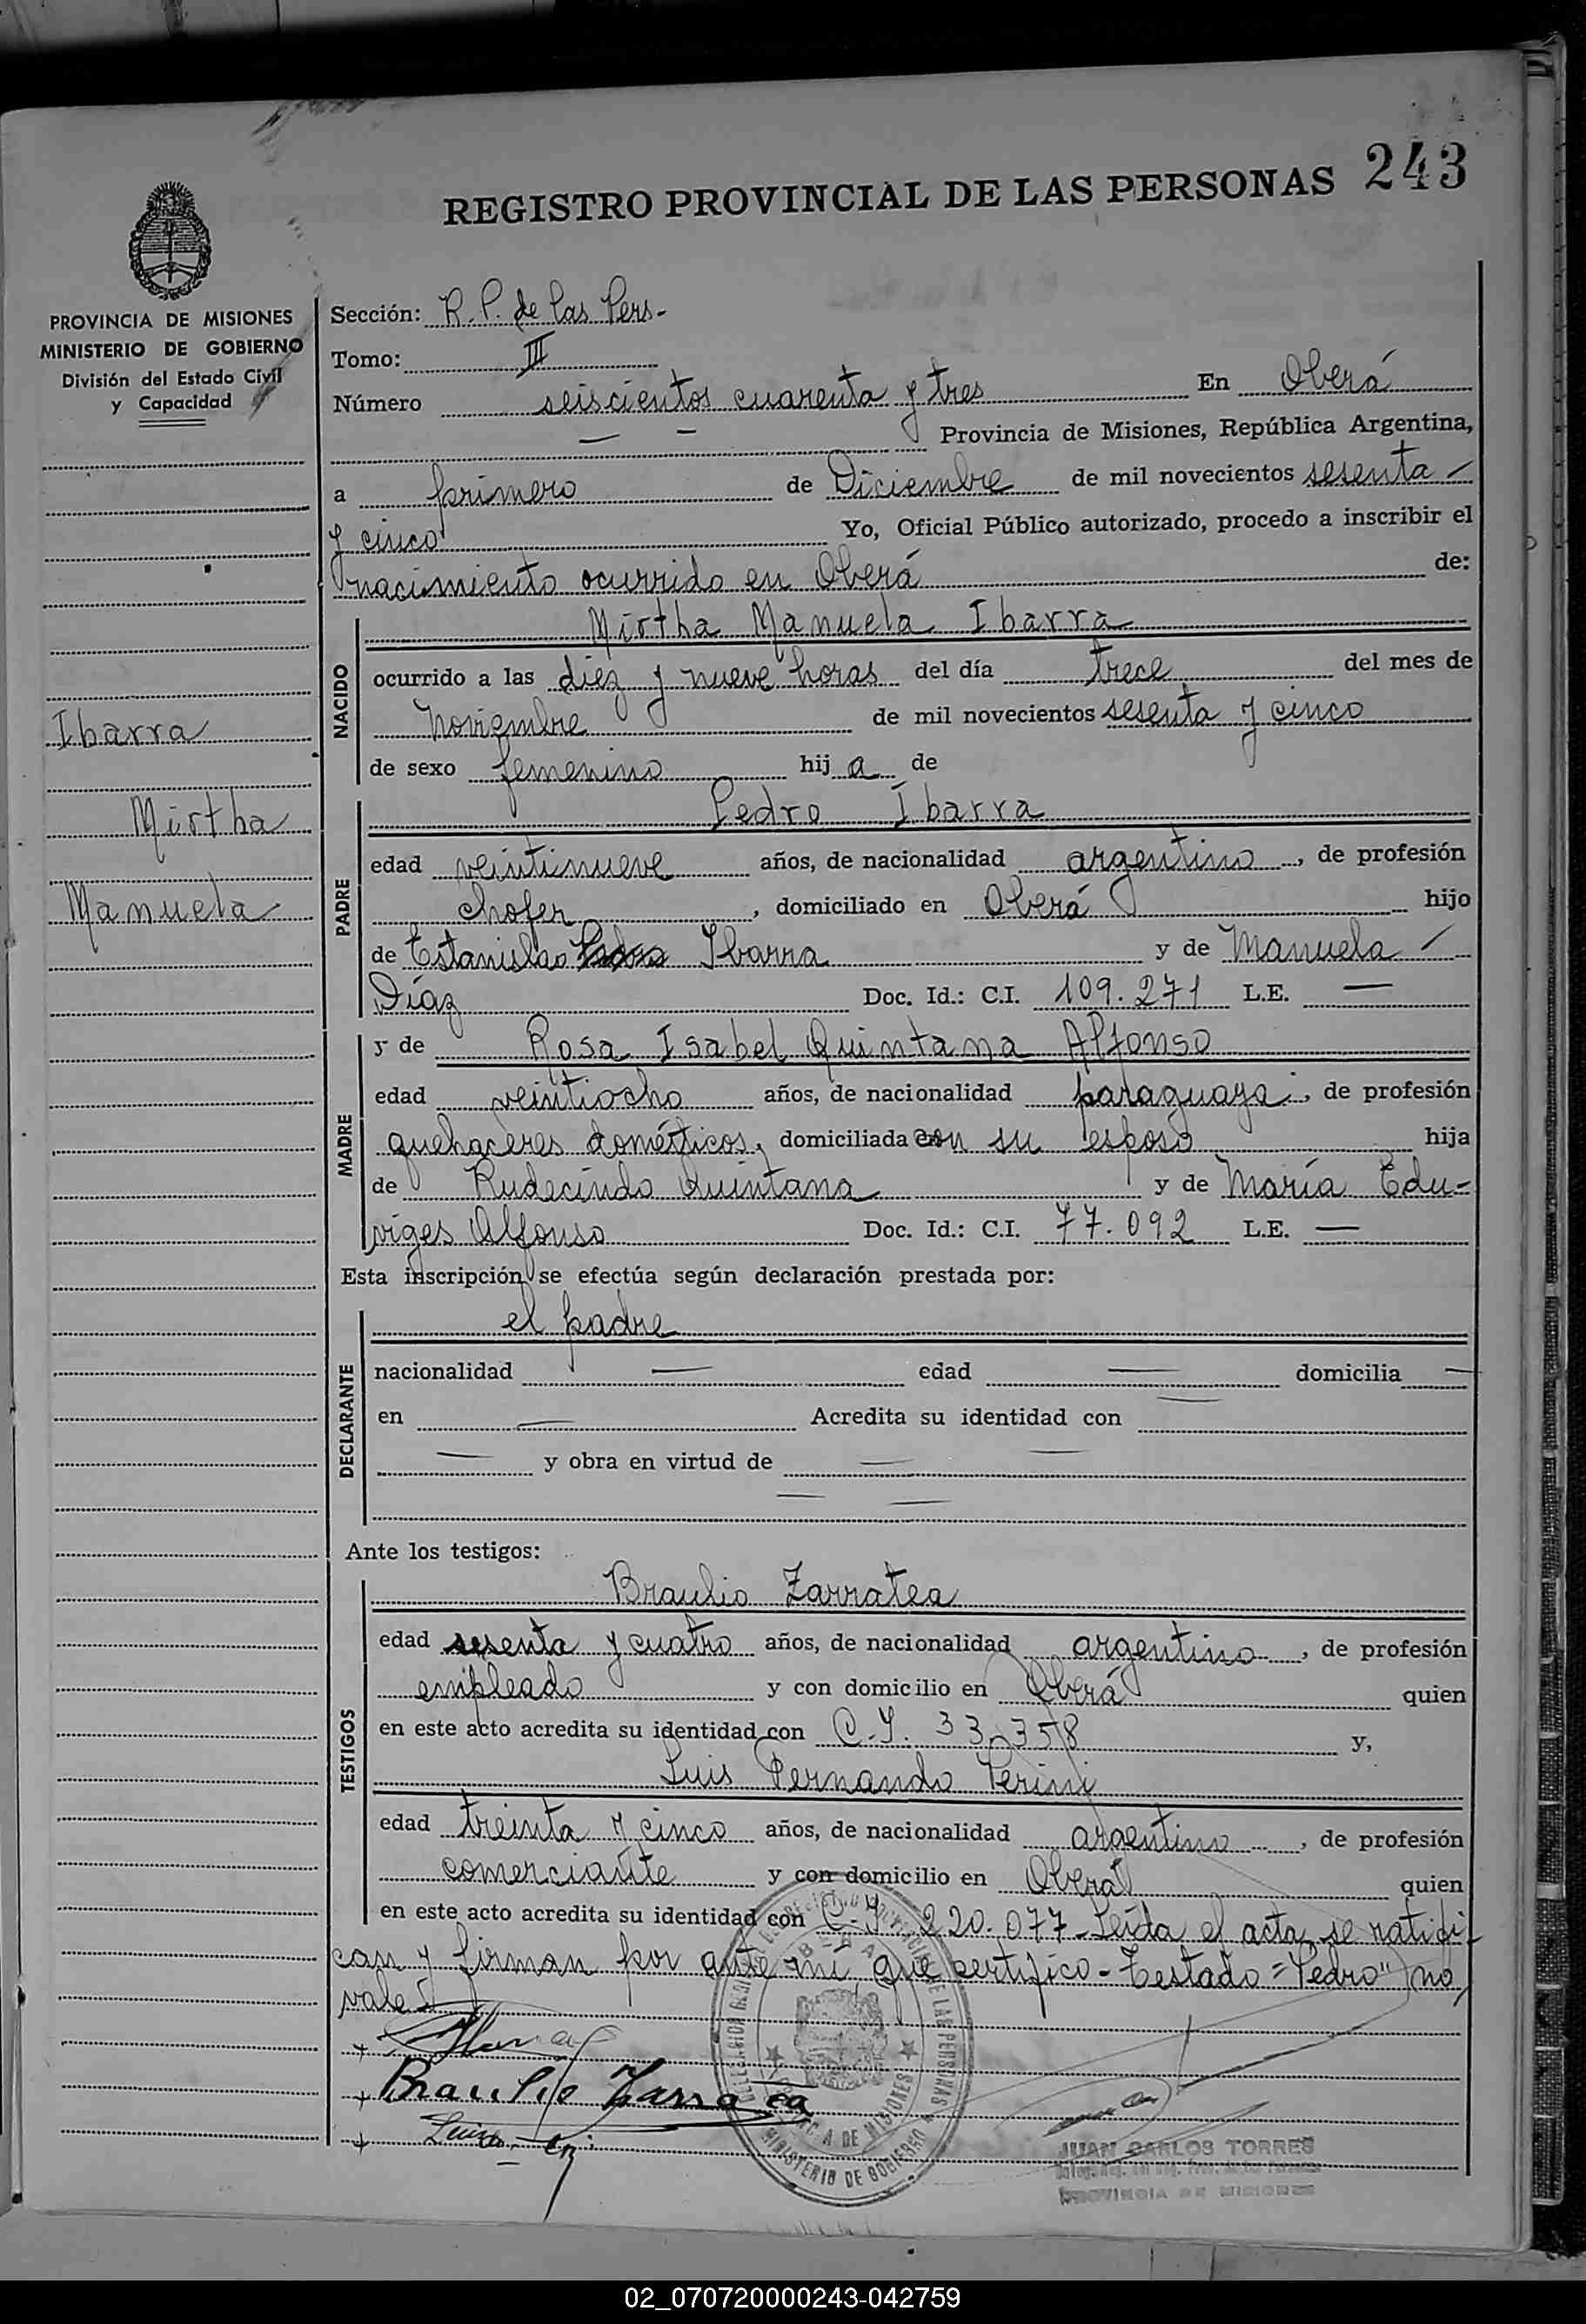 REGISTRO PROVINCIAL DE LAS PERSONAS 243
PROVINCIA DE MISIONES
MINISTERIO DE GOBIERNO
División del Estado Civil
y Capacidad
Ibarra
Mirtha
Manuela
Sección: R. P. de las Pers.-
Tomo: III
Número seiscientos cuarenta y tres En Oberá
— — Provincia de Misiones, República Argentina,
a primero de Diciembre de mil novecientos sesenta -
y cinco Yo, Oficial Público autorizado, procedo a inscribir el
nacimiento ocurrido en Oberá de:
NACIDO
Mirtha Manuela Ibarra
ocurrido a las diez y nueve horas del día trece del mes de
Noviembre de mil novecientos sesenta y cinco
de sexo femenino hij a de
PADRE
Pedro Ibarra
edad veintinueve años, de nacionalidad argentino, de profesión
chofer, domiciliado en Oberá hijo
de Estanislao Pedro Ibarra y de Manuela -
Díaz Doc. Id.: C.I. 109.271 L.E. —
MADRE
y de Rosa Isabel Quintana Alfonso
edad veintiocho años, de nacionalidad paraguaya, de profesión
quehaceres domésticos, domiciliada con su esposo hija
de Rudecindo Quintana y de María Edu-
viges Alfonso Doc. Id.: C.I. 77.092 L.E. —
Esta inscripción se efectúa según declaración prestada por:
DECLARANTE
el padre
nacionalidad — edad — domicilia —
en — Acredita su identidad con —
— y obra en virtud de — —
— —
Ante los testigos:
TESTIGOS
Braulio Zarratea
edad sesenta y cuatro años, de nacionalidad argentino, de profesión
empleado y con domicilio en Oberá quien
en este acto acredita su identidad con C.I. 33.358 y,
Luis Fernando Perini
edad treinta y cinco años, de nacionalidad argentino, de profesión
comerciante y con domicilio en Oberá quien
en este acto acredita su identidad con C.I. 220.077 - Leída el acta, se ratifi-
can y firman por ante mí, que certifico - Testado = "Pedro" no
vale.
+
+ Braulio Zarratea
+
MINISTERIO DE GOBIERNO
JUAN CARLOS TORRES
PROVINCIA DE MISIONES
02_070720000243-042759